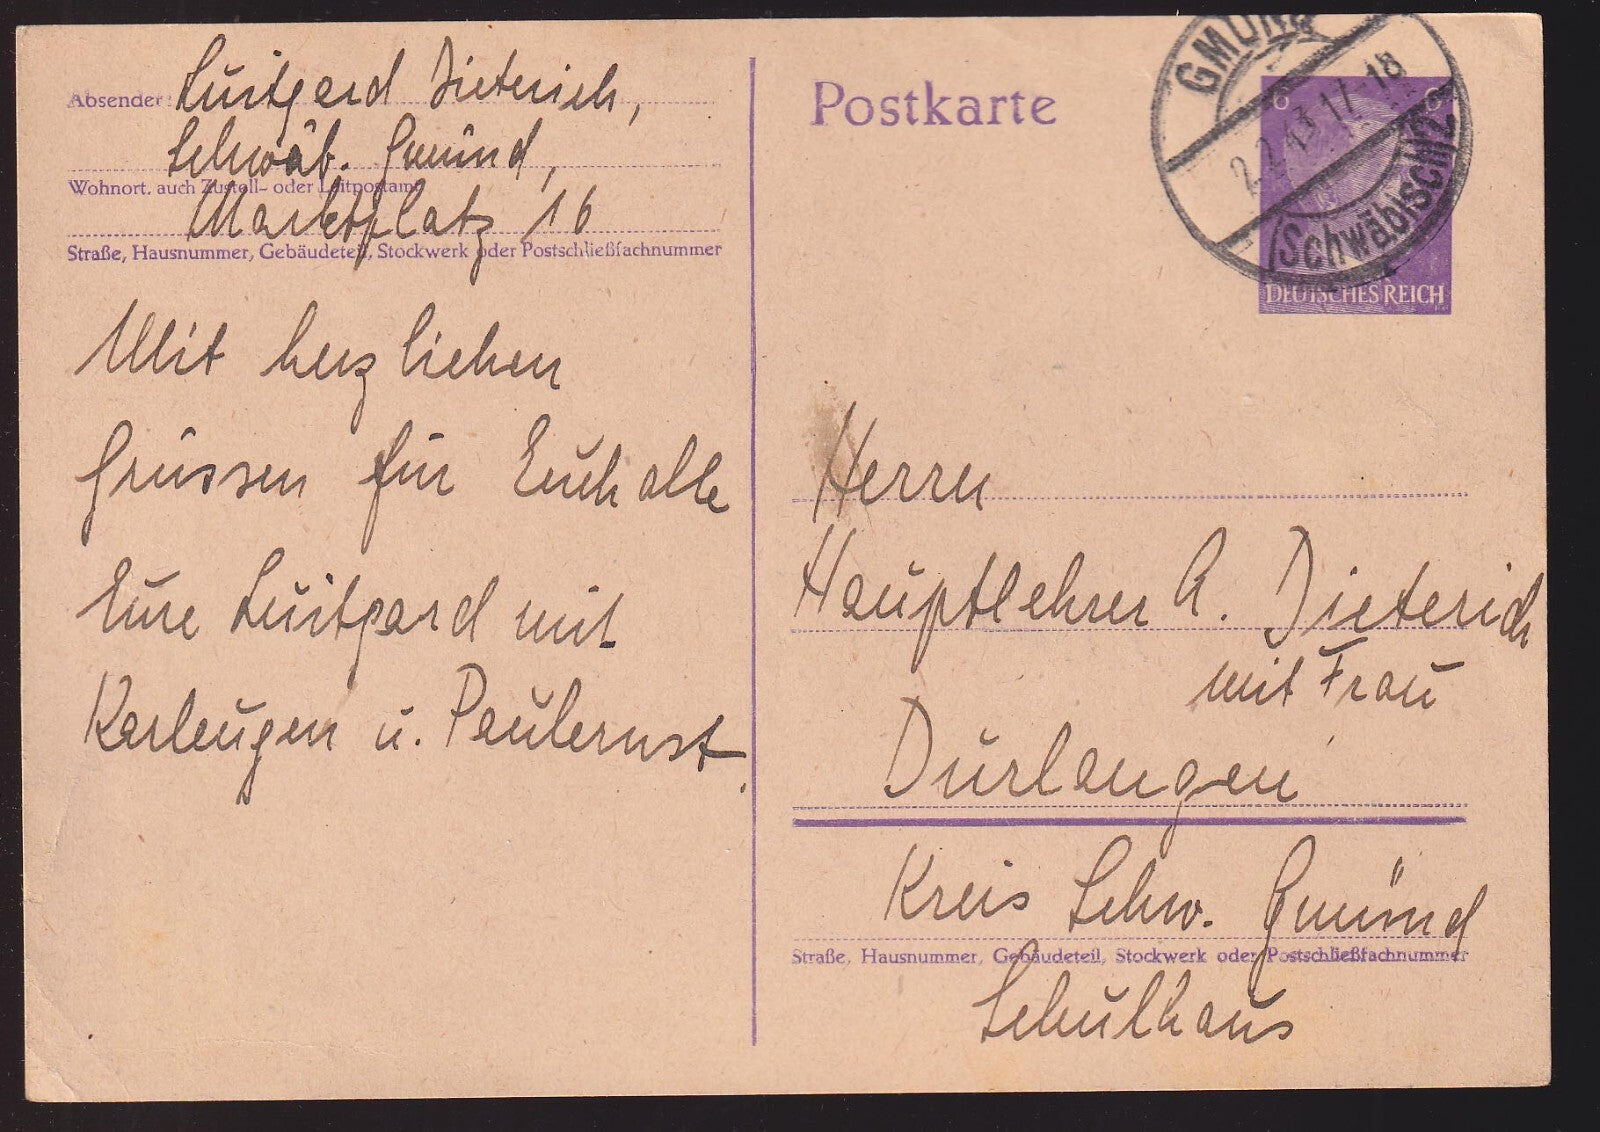 Absender: Luitgard Dieterich,
Schwäb. Gmünd,
Wohnort, auch Zustell- oder Leitpostamt
Marktplatz 16
Straße, Hausnummer, Gebäudeteil, Stockwerk oder Postschließfachnummer
Mit herzlichen
Grüssen für Euch alle
Eure Luitgard mit
Karleugen u. Paulernst.
Postkarte
GMÜND
2.2.43.17-18
(Schwäbisch)
6 6
DEUTSCHES REICH
Herrn
Hauptlehrer A. Dieterich
mit Frau
Durlangen
Kreis Schw. Gmünd
Straße, Hausnummer, Gebäudeteil, Stockwerk oder Postschließfachnummer
Schulhaus